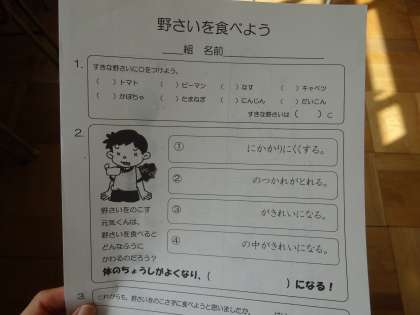 野さいを食べよう
組 名前
1. すきな野さいに○をつけよう。
( )トマト ( )ピーマン ( )なす ( )キャベツ
( )かぼちゃ ( )たまねぎ ( )にんじん ( )だいこん
すきな野さいは( )こ
2.
① にかかりにくくする。
② のつかれがとれる。
③ がきれいになる。
④ の中がきれいになる。
野さいをのこす
元気くんは、
野さいを食べると
どんなふうに
かわるのだろう?
体のちょうしがよくなり、( )になる!
3. これからも、野さいをのこさずに食べようと思いましたか。